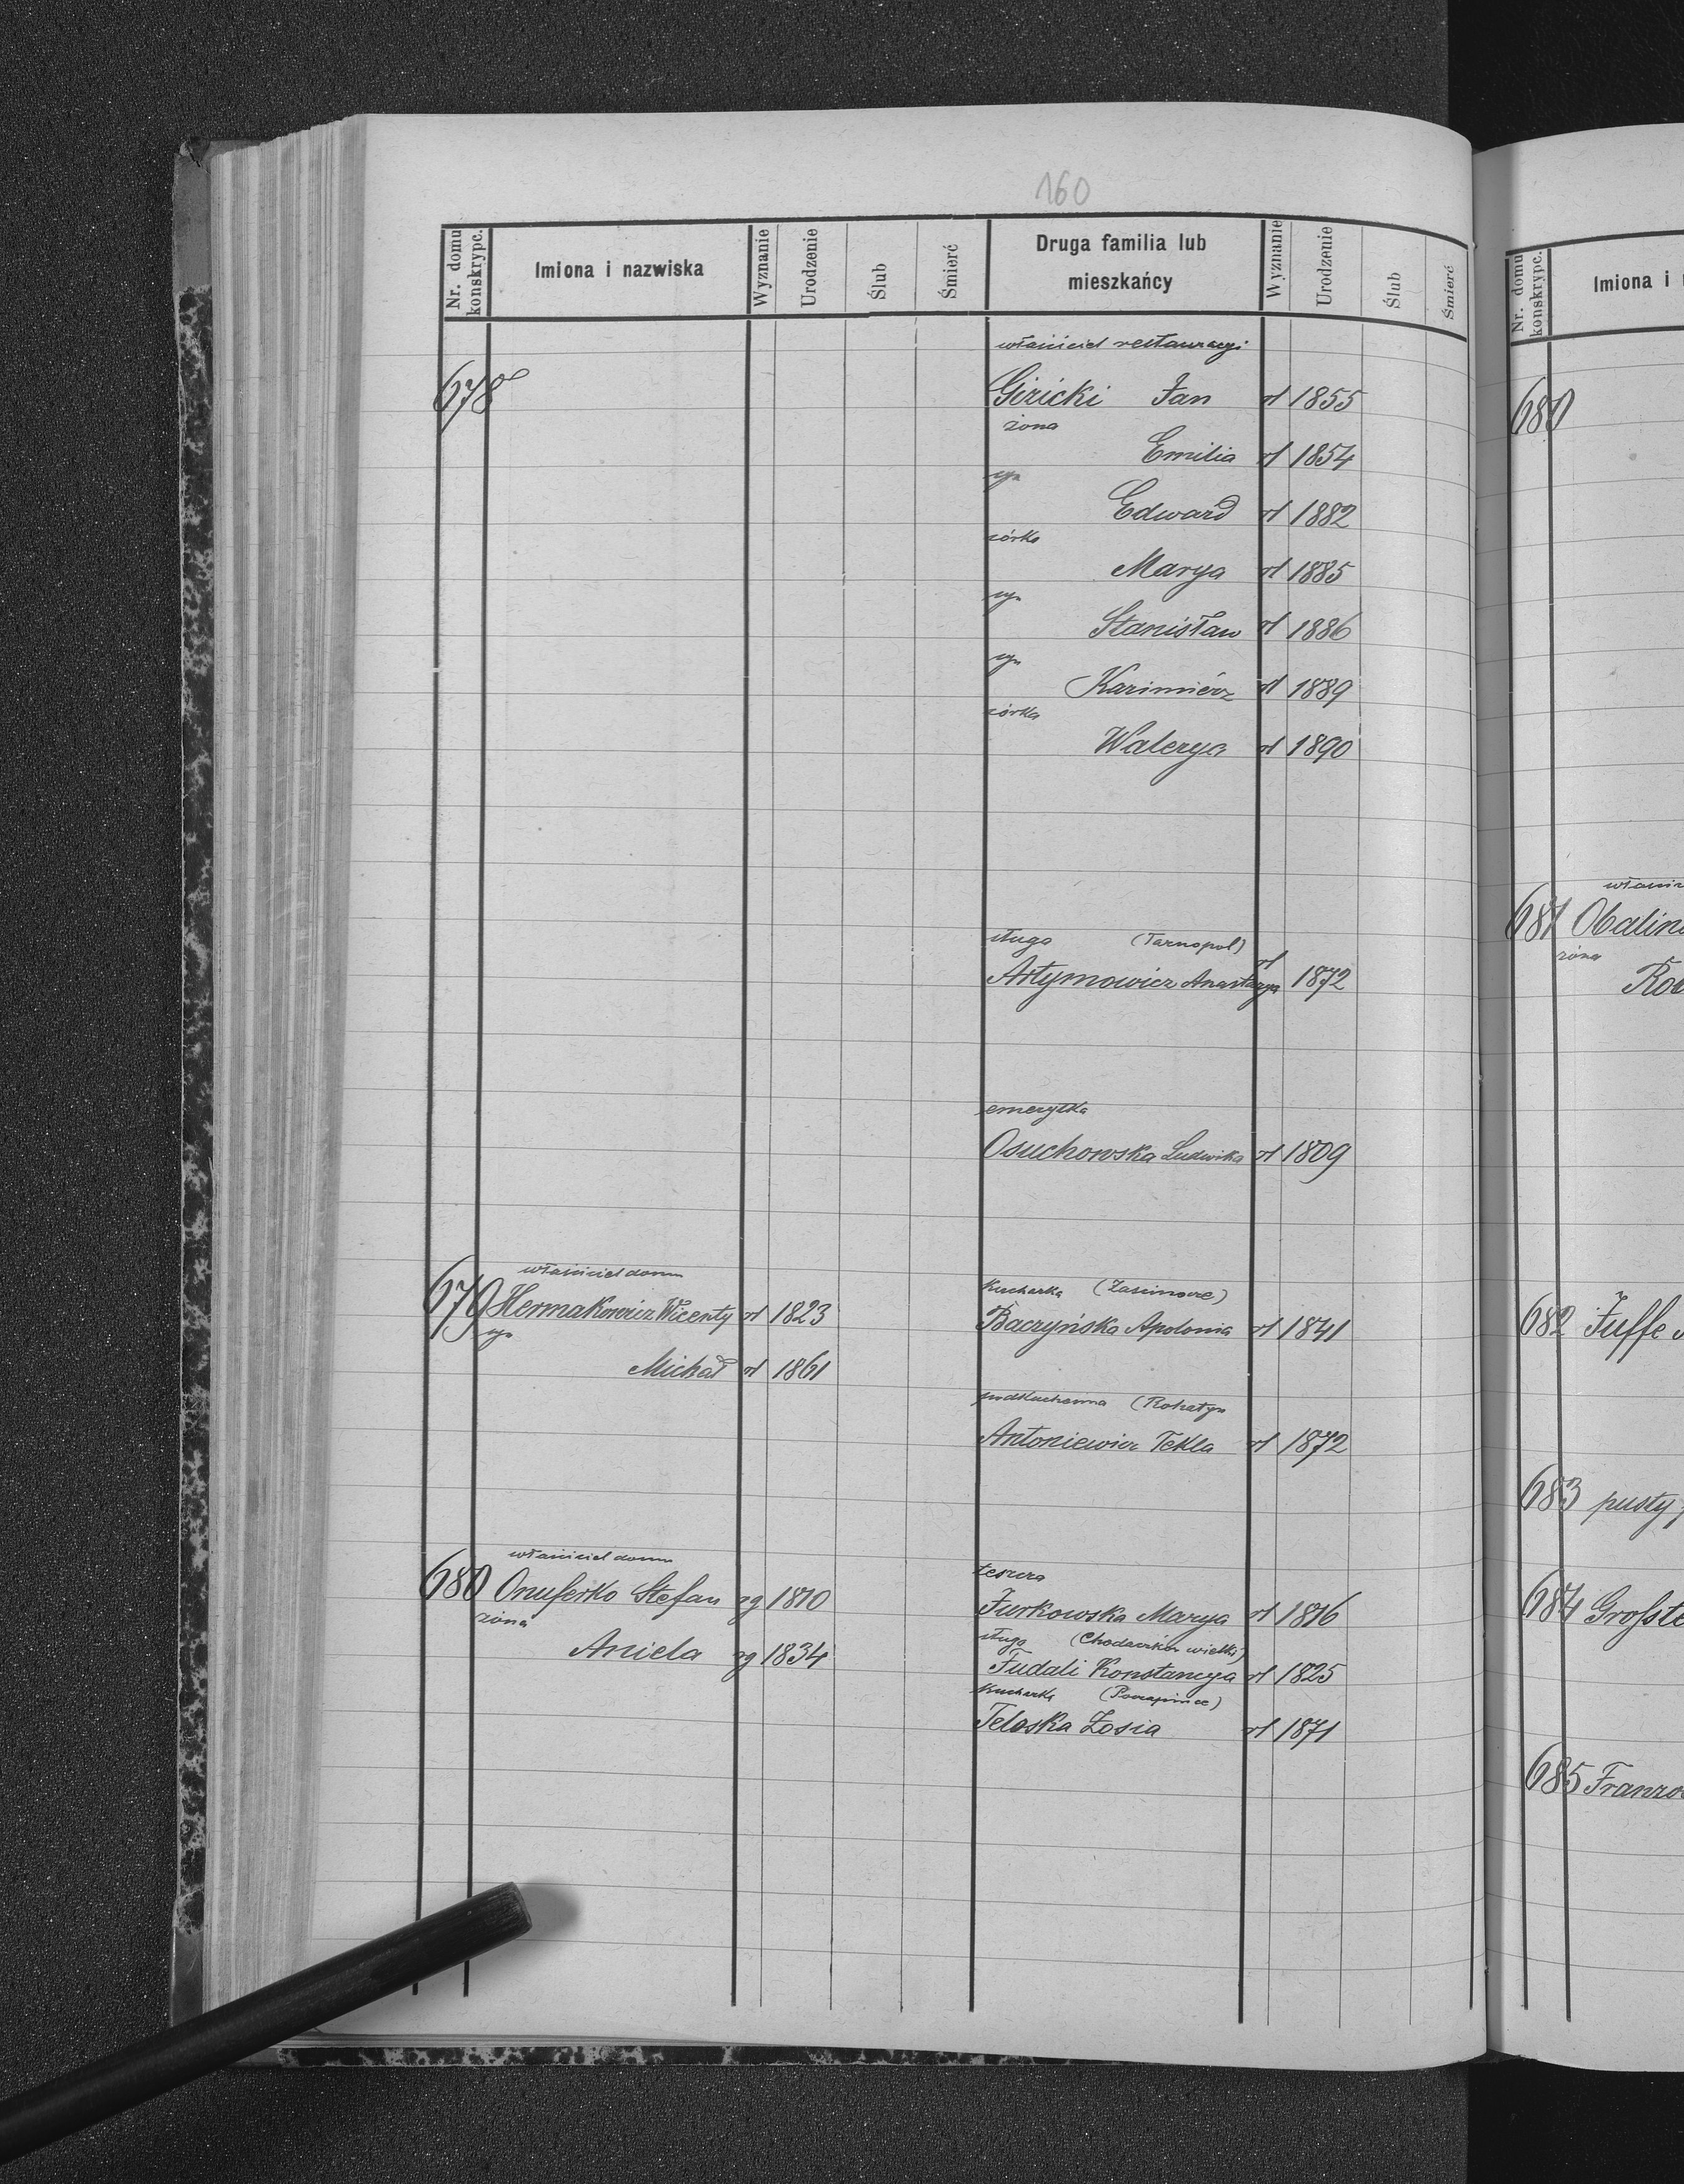 160
Nr. domu konskrypc.
Imiona i nazwiska
Wyznanie
Urodzenie
Ślub
Śmierć
Druga familia lub
mieszkańcy
Wyznanie
Urodzenie
Ślub
Śmierć
właściciel restauracyi
678 Giricki Jan rł 1855
żona
Emilia rł 1854
syn
Edward rł 1882
córka
Marya rł 1885
syn
Stanisław rł 1886
syn
Kazimierz rł 1889
córka
Walerya rł 1890
sługa (Tarnopol)
Artymowicz Anastazya rł 1872
emerytka
Osuchowska Ludwika rł 1809
właściciel domu
679 Hermakowicz Wicenty rł 1823
syn
Michał rł 1861
kucharka
Baczyńska Apolonia rł 1841
podkuchenna (Rohatyn
Antoniewicz Tekla rł 1872
właściciel domu
680 Onuferko Stefan rg 1810
żona
Aniela rg 1834
Jurkowska Marya rł 1816
sługa (Chodaczków wielki)
Fudali Konstancya rł 1825
kucharka
Teloska Zosia rł 1871
Nr. domu konskrypc.
Imiona i
680
681 Obalin
żona
682 Juffe
683 pusty
684 Großte
685 Franzo